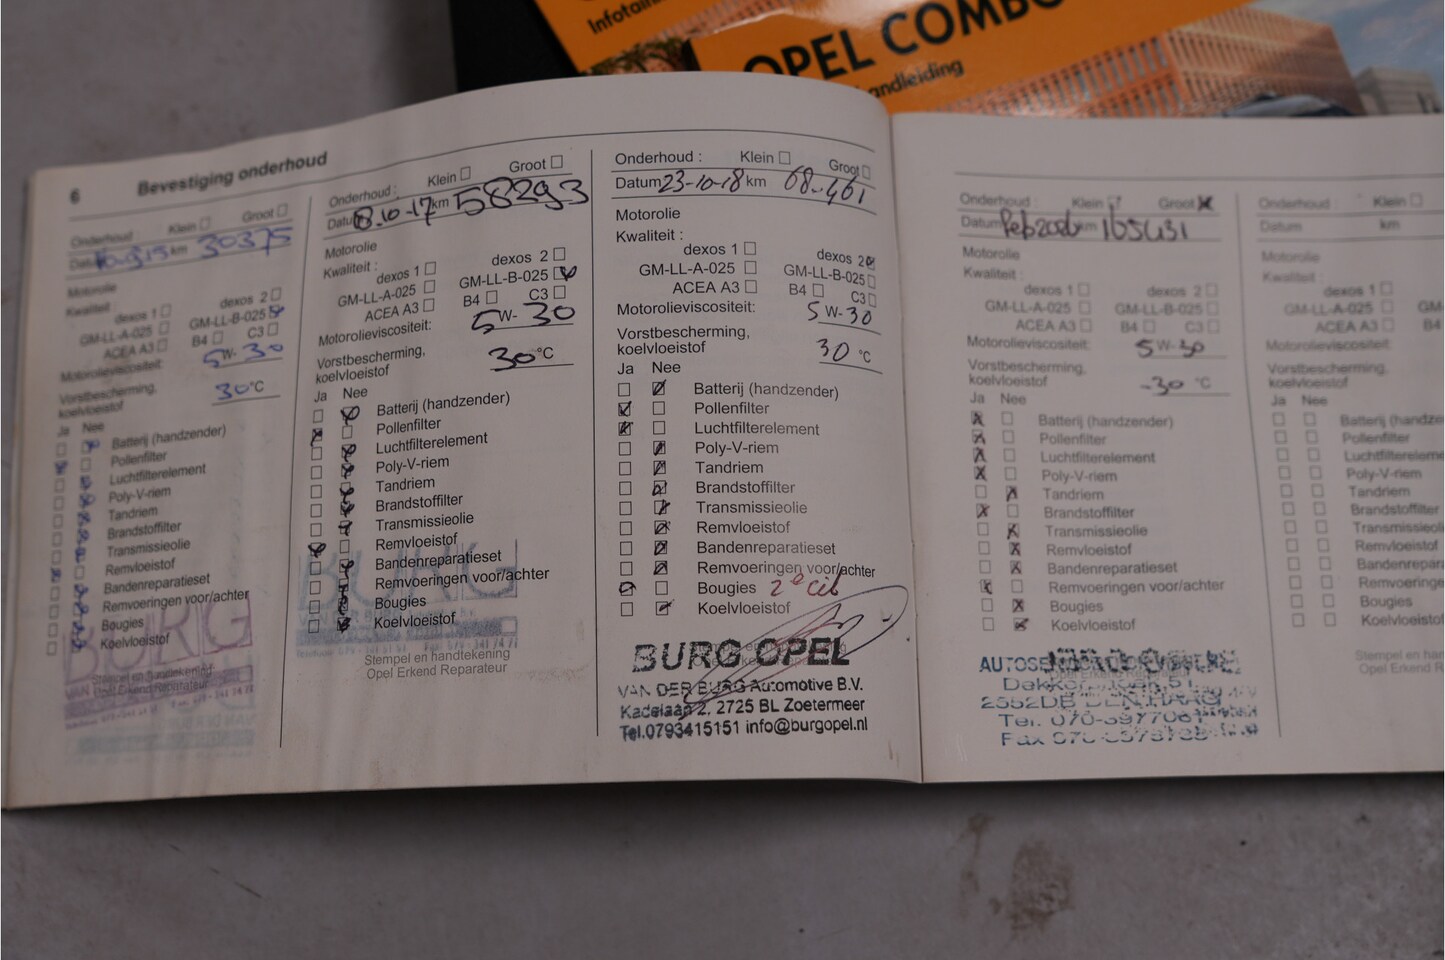 OPEL COMBO
6 Bevestiging onderhoud
Onderhoud : Klein Groot
km 30375
Motorolie
Kwaliteit :
dexos 1 dexos 2
GM-LL-A-025 GM-LL-B-025
ACEA A3 B4 C3
Motorolieviscositeit: 5W-30
Vorstbescherming,
koelvloeistof 30°C
Ja Nee
Batterij (handzender)
Pollenfilter
Luchtfilterelement
Poly-V-riem
Tandriem
Brandstoffilter
Transmissieolie
Remvloeistof
Bandenreparatieset
Remvoeringen voor/achter
Bougies
Koelvloeistof
BURG
Stempel en handtekening
Opel Erkend Reparateur
Onderhoud : Klein Groot
Datum 8.10-17 km 58293
Motorolie
Kwaliteit :
dexos 1 dexos 2
GM-LL-A-025 GM-LL-B-025
ACEA A3 B4 C3
Motorolieviscositeit: 5W-30
Vorstbescherming,
koelvloeistof 30°C
Ja Nee
Batterij (handzender)
Pollenfilter
Luchtfilterelement
Poly-V-riem
Tandriem
Brandstoffilter
Transmissieolie
Remvloeistof
Bandenreparatieset
Remvoeringen voor/achter
Bougies
Koelvloeistof
BURG
Stempel en handtekening
Opel Erkend Reparateur
Onderhoud : Klein Groot
Datum 23-10-18 km 68.461
Motorolie
Kwaliteit :
dexos 1 dexos 2
GM-LL-A-025 GM-LL-B-025
ACEA A3 B4 C3
Motorolieviscositeit: 5 W-30
Vorstbescherming,
koelvloeistof 30 °C
Ja Nee
Batterij (handzender)
Pollenfilter
Luchtfilterelement
Poly-V-riem
Tandriem
Brandstoffilter
Transmissieolie
Remvloeistof
Bandenreparatieset
Remvoeringen voor/achter
Bougies 2e
Koelvloeistof
BURG OPEL
VAN DER BURG Automotive B.V.
Kadelaan 2, 2725 BL Zoetermeer
Tel.0793415151 info@burgopel.nl
Onderhoud : Klein Groot
Datum km 165431
Motorolie
Kwaliteit :
dexos 1 dexos 2
GM-LL-A-025 GM-LL-B-025
ACEA A3 B4 C3
Motorolieviscositeit: 5 W-30
Vorstbescherming,
koelvloeistof -30 °C
Ja Nee
Batterij (handzender)
Pollenfilter
Luchtfilterelement
Poly-V-riem
Tandriem
Brandstoffilter
Transmissieolie
Remvloeistof
Bandenreparatieset
Remvoeringen voor/achter
Bougies
Koelvloeistof
Opel Erkend Reparateur
2552DB DEN HAAG
Onderhoud : Klein
Datum km
Motorolie
Kwaliteit :
dexos 1
GM-LL-A-025
ACEA A3 B4
Motorolieviscositeit:
Vorstbescherming,
koelvloeistof
Ja Nee
Pollenfilter
Luchtfilterelement
Poly-V-riem
Tandriem
Brandstoffilter
Remvloeistof
Bougies